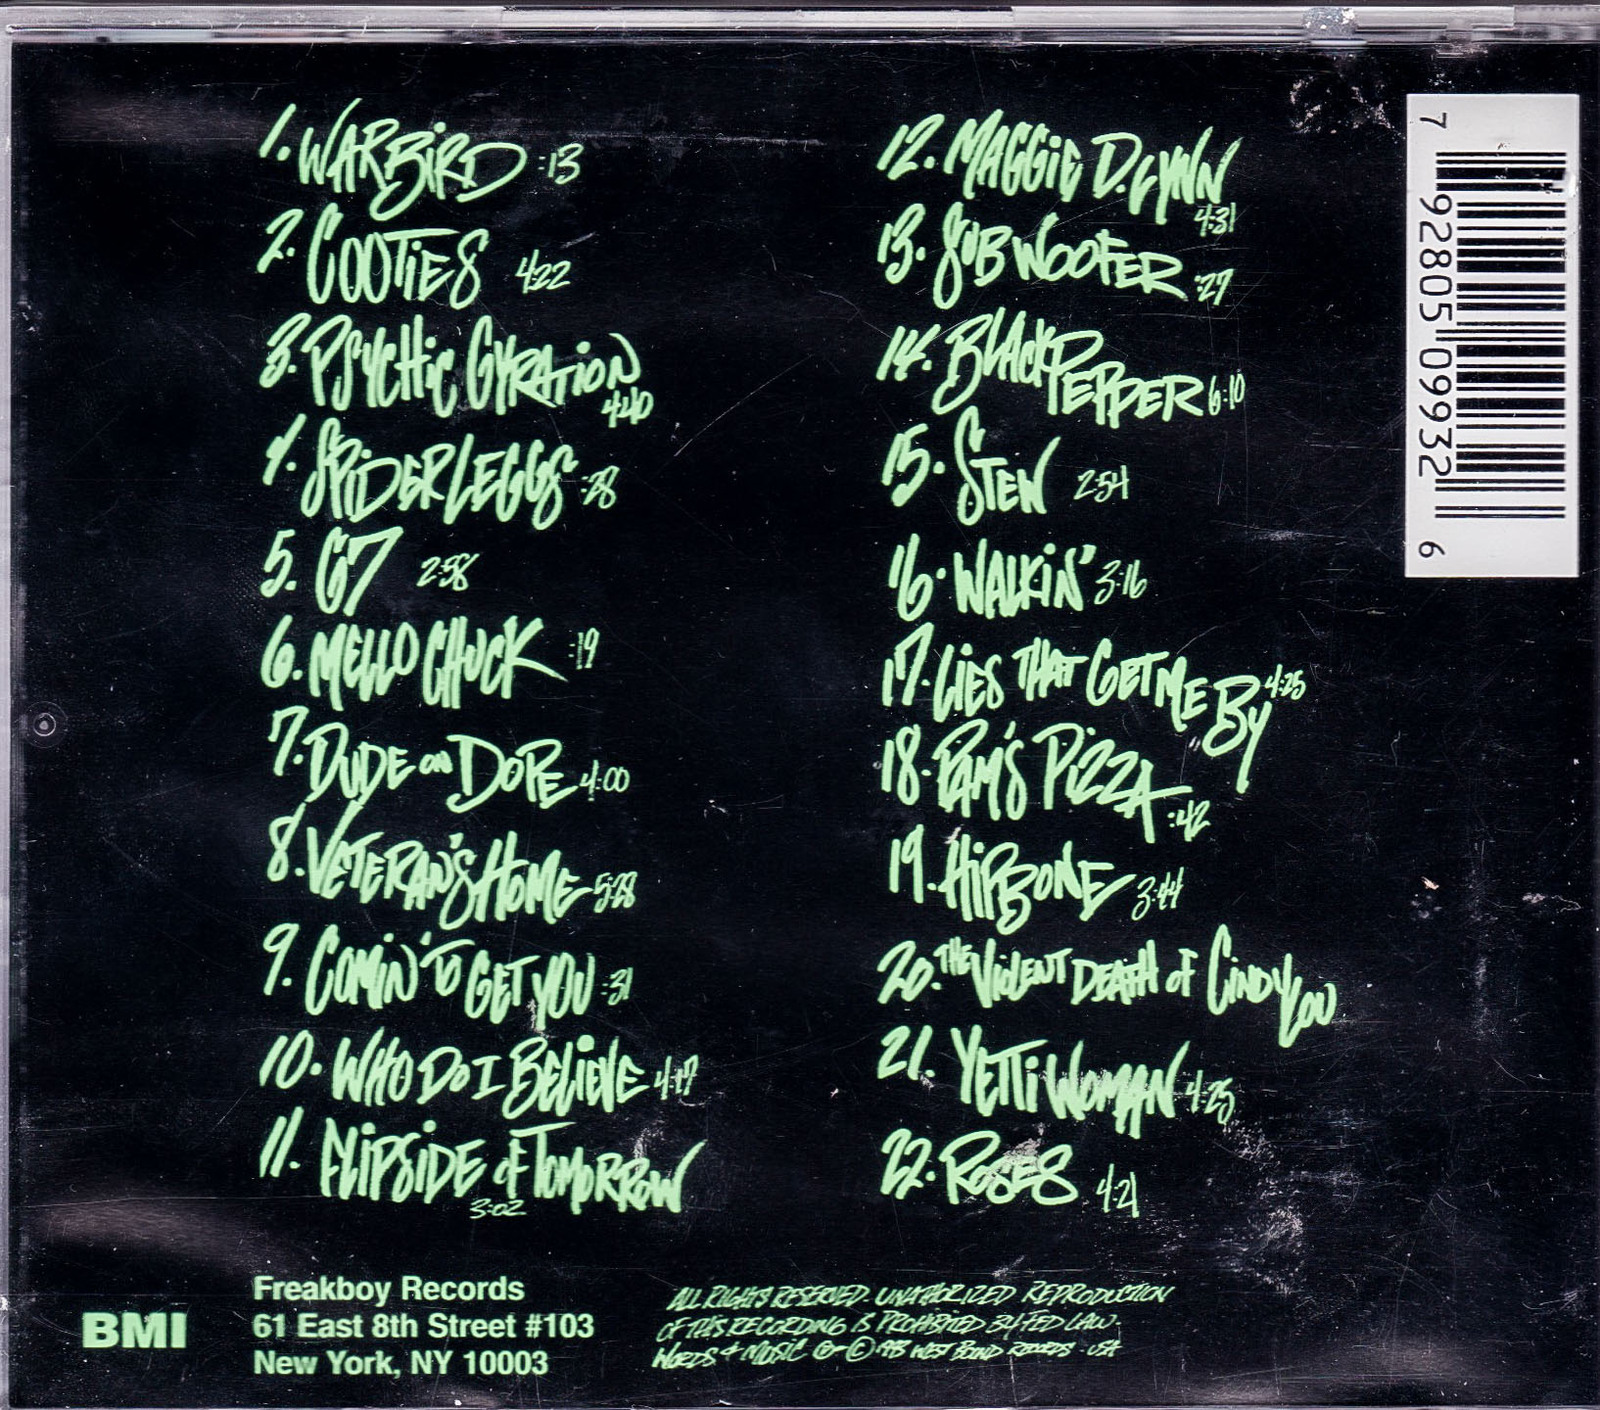 1. WARBIRD :13
2. COOTIES 4:22
3. PSYCHIC GYRATION
4:40
4. SPIDER LEGGS :28
5. G7 2:58
6. MELLO CHUCK :19
7. DUDE ON DOPE 4:00
8. VETERAN'S HOME 5:28
9. COMIN' TO GET YOU :31
10. WHO DO I BELIEVE 4:17
11. FLIPSIDE OF TOMORROW
3:02
12. MAGGIE D. LYNN
4:31
13. SUB WOOFER :27
14. BLACK PEPPER 6:10
15. STEW 2:54
16. WALKIN' 3:16
17. LIES THAT GET ME BY 4:25
18. PAM'S PIZZA :42
19. HIPBONE 3:44
20. THE VIOLENT DEATH OF CINDY LOU
21. YETTI WOMAN 4:25
22. ROSES 4:21
7 92805 09932 6
BMI
Freakboy Records
61 East 8th Street #103
New York, NY 10003
ALL RIGHTS RESERVED. UNATHORIZED REPRODUCTION
OF THIS RECORDING IS PROHIBITED BY FED LAW.
WORDS & MUSIC ℗ © 1993 WEST BOUND RECORDS - USA